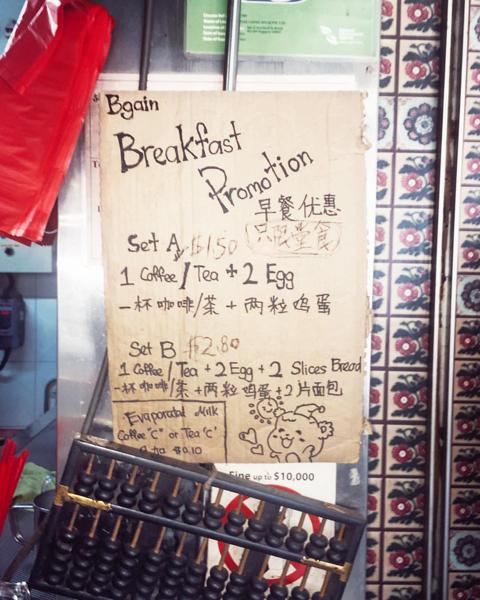 Bgain
Breakfast
Promotion
早餐优惠
只限堂食
Set A $1.50
1 Coffee / Tea + 2 Egg
一杯咖啡/茶 + 两粒鸡蛋
Set B $2.80
1 Coffee / Tea + 2 Egg + 2 Slices Bread
一杯咖啡/茶 + 两粒鸡蛋 + 2片面包
Evaporated Milk
Coffee "C" or Tea 'C'
$0.10
Fine up to $10,000